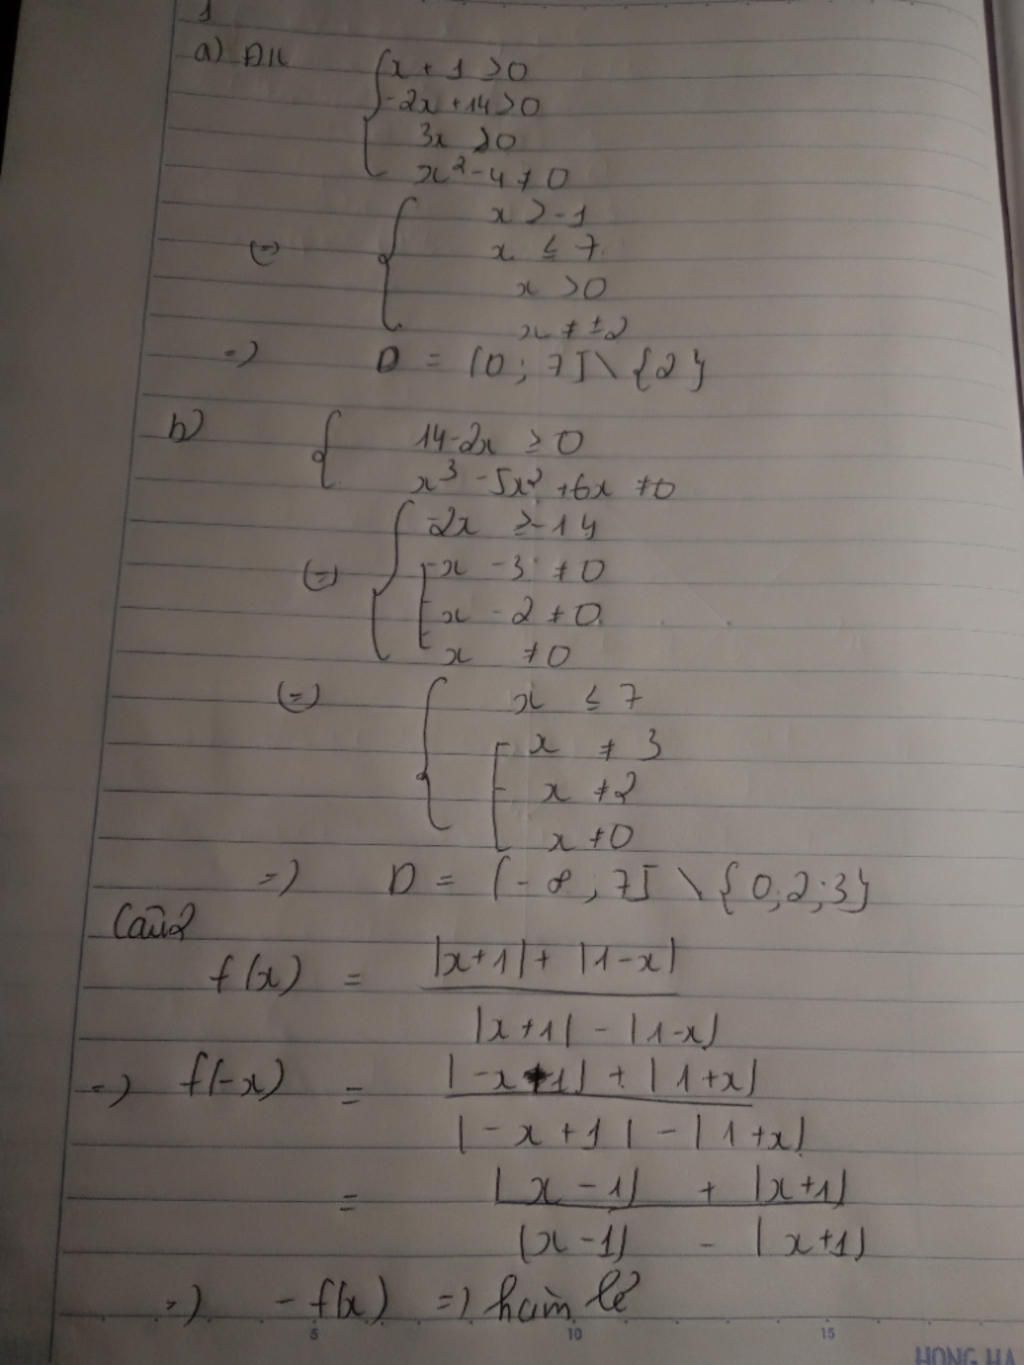 1
a) ĐK { x + 1 > 0
-2x + 14 > 0
3x > 0
x² - 4 ≠ 0
(=) { x > -1
x ≤ 7
x > 0
x ≠ ±2
=) D = (0; 7] \ {2}
b) { 14-2x ≥ 0
x³ - 5x² + 6x ≠ 0
(=) { -2x ≥ -14
[ x - 3 ≠ 0
x - 2 ≠ 0
x ≠ 0
(=) { x ≤ 7
[ x ≠ 3
x ≠ 2
x ≠ 0
=) D = (-∞; 7] \ {0;2;3}
Câu2
f(x) = |x+1| + |1-x|
|x+1| - |1-x|
=) f(-x) = |-x+1| + |1+x|
|-x+1| - |1+x|
= |x-1| + |x+1|
|x-1| - |x+1|
=) -f(x) =) hàm lẻ
5 10 15
HONG HA